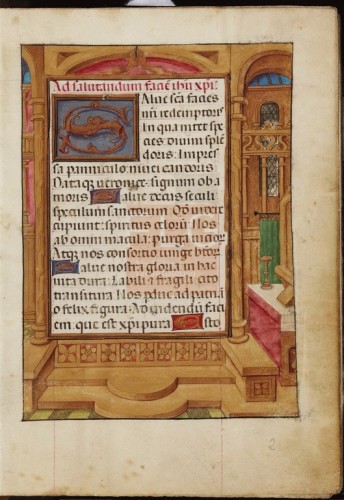 Ad salutandum faciē ihū xpi:
Alue scā facies
nr̄i redemptoris
In qua nitet spe
cies diuini splē
doris: Impres
sa panniculo niuei candoris
Dataqz ueronice signum ob a
moris Salue decus seculi
speculum sanctorum Qd̄ uidere
cupiunt spiritus celorū Nos
ab omni macula purga uicior̄
Atqz nos consorcio iunge btōr̄
Salue nostra gloria in hac
uita dura: Labili & fragili cito
transitura Nos pduc ad patriā
o felix figura: Ad uidendū faci
em que est xp̄i pura Esto
2